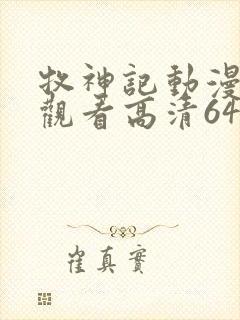 牧神記動漫
觀看高清64
崔真實